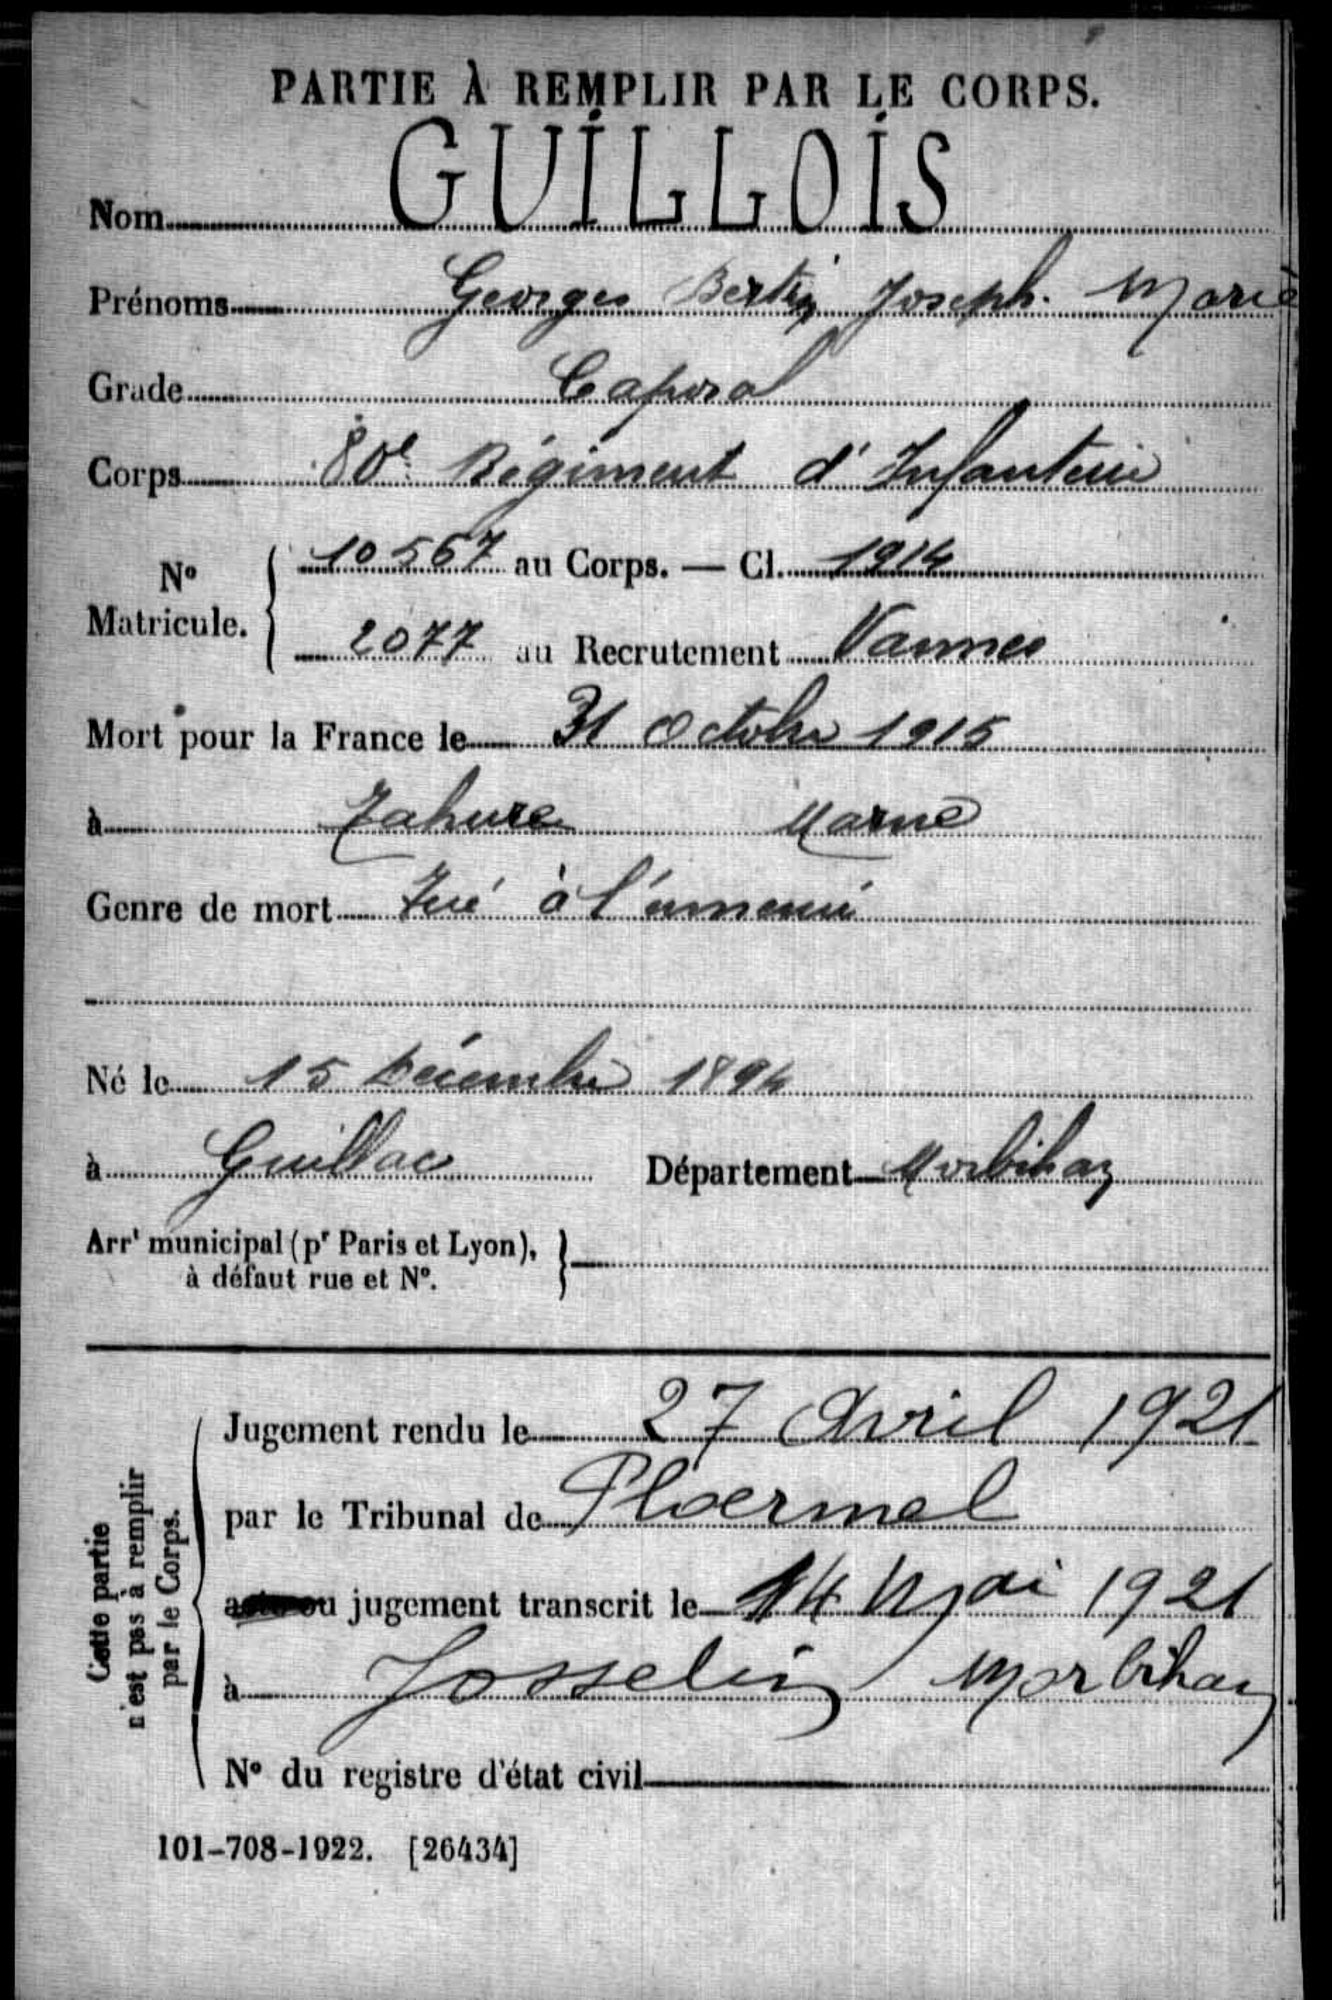 PARTIE À REMPLIR PAR LE CORPS.
Nom GUILLOIS
Prénoms Georges Bertin Joseph. Marie
Grade Caporal
Corps 80e Régiment d'Infanterie
N° Matricule. { 10567 au Corps. — Cl. 1914
2077 au Recrutement Vannes
Mort pour la France le 31 Octobre 1915
à Tahure Marne
Genre de mort Tué à l'ennemi
Né le 15 Décembre 1894
à Guillac Département Morbihan
Arrt municipal (pr Paris et Lyon), }
à défaut rue et N°.
Cette partie
n'est pas à remplir
par le Corps.
Jugement rendu le 27 Avril 1921
par le Tribunal de Ploermel
acte ou jugement transcrit le 14 Mai 1921
à Josselin Morbihan
N° du registre d'état civil
101-708-1922. [26434]